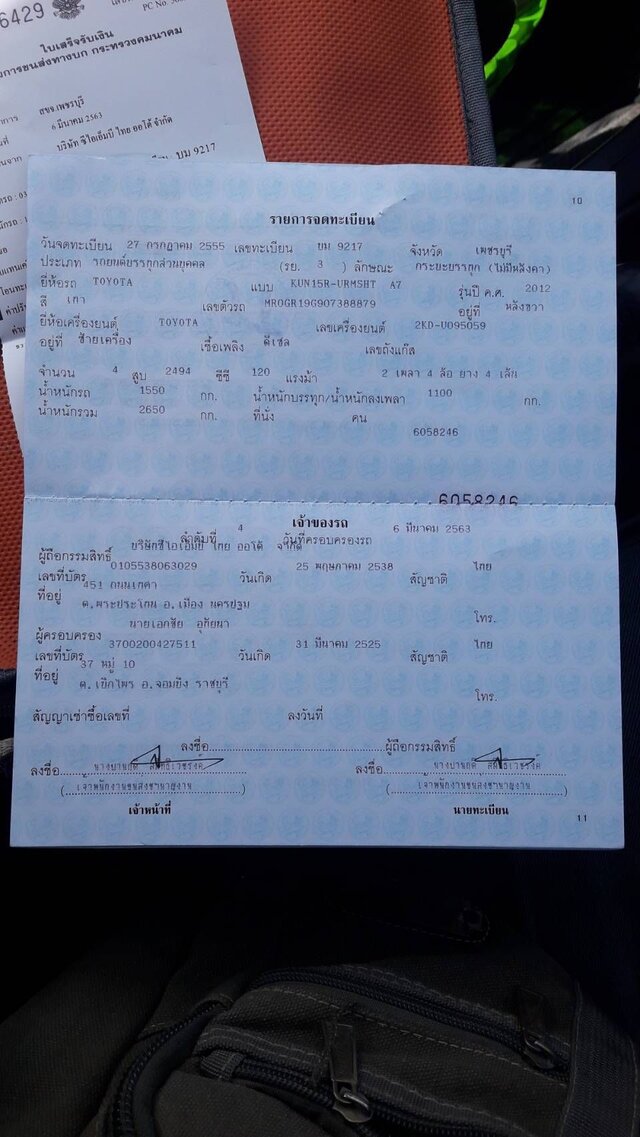 6429
PC No.
ใบเสร็จรับเงิน
การขนส่งทางบก กระทรวงคมนาคม
สขจ.เพชรบุรี
6 มีนาคม 2563
บริษัท ซีไอเอ็มบี ไทย ออโต้ จำกัด
บม 9217
10
รายการจดทะเบียน
วันจดทะเบียน 27 กรกฎาคม 2555 เลขทะเบียน บม 9217 จังหวัด เพชรบุรี
ประเภท รถยนต์บรรทุกส่วนบุคคล (รย. 3 ) ลักษณะ กระบะบรรทุก (ไม่มีหลังคา)
ยี่ห้อรถ TOYOTA แบบ KUN15R-URMSHT A7 รุ่นปี ค.ศ. 2012
สี เทา เลขตัวรถ MR0GR19G907388879 อยู่ที่ หลังขวา
ยี่ห้อเครื่องยนต์ TOYOTA เลขเครื่องยนต์ 2KD-U095059
อยู่ที่ ซ้ายเครื่อง เชื้อเพลิง ดีเซล เลขถังแก๊ส
จำนวน 4 สูบ 2494 ซีซี 120 แรงม้า 2 เพลา 4 ล้อ ยาง 4 เส้น
น้ำหนักรถ 1550 กก. น้ำหนักบรรทุก/น้ำหนักลงเพลา 1100 กก.
น้ำหนักรวม 2650 กก. ที่นั่ง คน
6058246
6058246
เจ้าของรถ
ลำดับที่ 4 วันที่ครอบครองรถ 6 มีนาคม 2563
ผู้ถือกรรมสิทธิ์ บริษัทซีไอเอ็มบี ไทย ออโต้ จำกัด
เลขที่บัตร 0105538063029 วันเกิด 25 พฤษภาคม 2538 สัญชาติ ไทย
ที่อยู่ 451 ถนนเทศา
ต.พระประโทน อ.เมือง นครปฐม โทร.
ผู้ครอบครอง นายเอกชัย
เลขที่บัตร 3700200427511 วันเกิด 31 มีนาคม 2525 สัญชาติ ไทย
ที่อยู่ 37 หมู่ 10
ต.เบิกไพร อ.จอมบึง ราชบุรี โทร.
สัญญาเช่าซื้อเลขที่ ลงวันที่
ลงชื่อ ผู้ถือกรรมสิทธิ์
ลงชื่อ ลงชื่อ
(เจ้าพนักงานขนส่งชำนาญงาน) (เจ้าพนักงานขนส่งชำนาญงาน)
เจ้าหน้าที่ นายทะเบียน
11